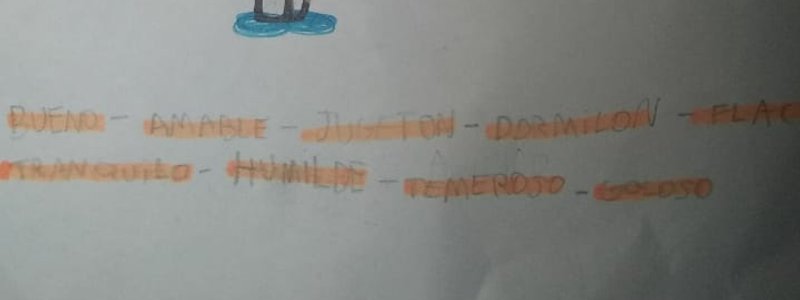 BUENO - AMABLE - JUGETON - DORMILON - FLAC
TRANQUILO - HUMILDE - TEMEROSO - GOLOSO